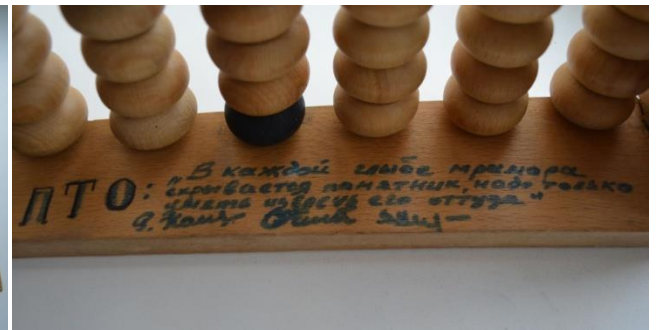 ПТО: „В каждой глыбе мрамора
скрывается памятник, надо только
уметь извлечь его оттуда"